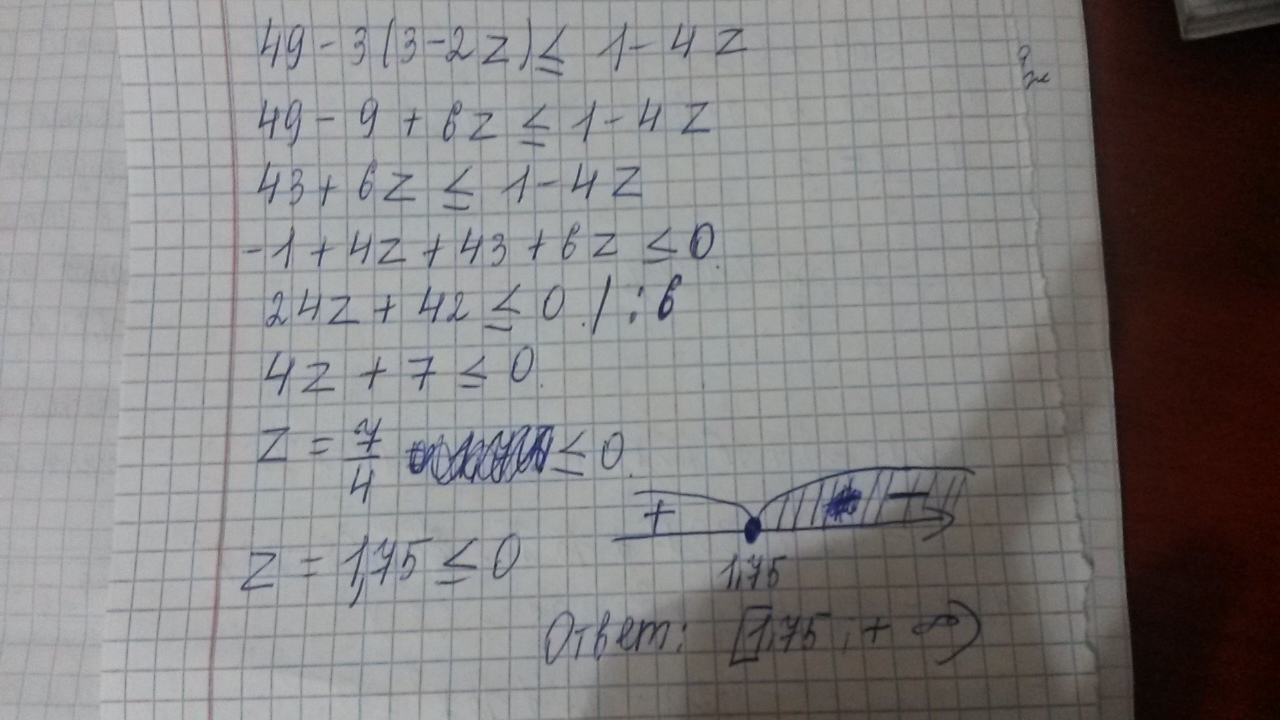 49 - 3(3-2z) ≤ 1 - 4z
49 - 9 + 6z ≤ 1 - 4z
43 + 6z ≤ 1 - 4z
-1 + 4z + 43 + 6z ≤ 0
24z + 42 ≤ 0 / :6
4z + 7 ≤ 0
z = 7/4 ≤ 0
+ −
z = 1,75 ≤ 0
1,75
Ответ: [1,75 ; + ∞)